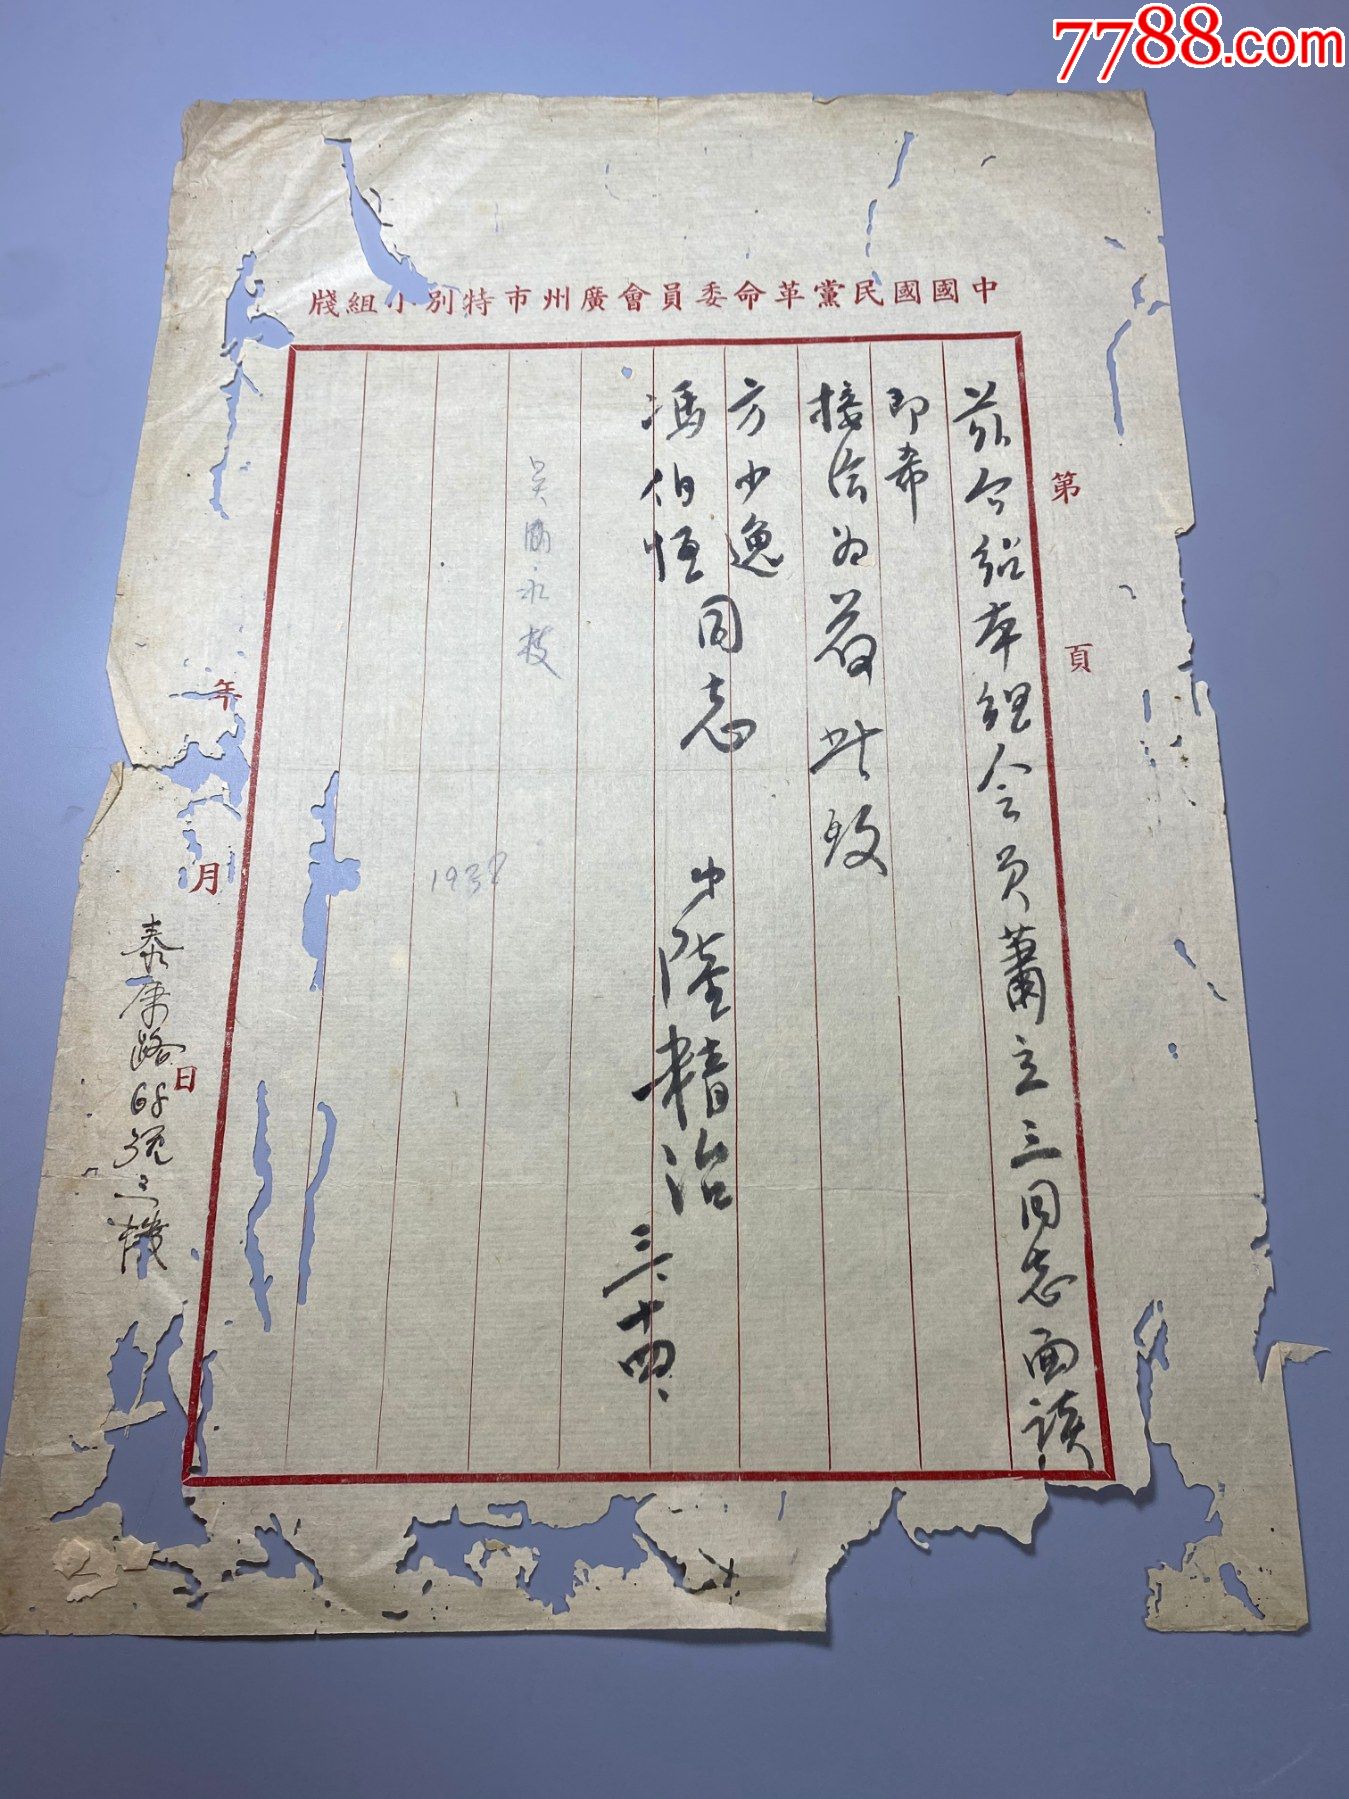 7788.com
中國國民黨革命委員會廣州市特別小組牋
第 頁
兹介紹本組会員蕭立三同志面談
即希
接洽为荷此致
方少逸
馮伯恒同志
陸精治
三、十四、
吴 永枝
193
年 月 日
泰康路68號三楼